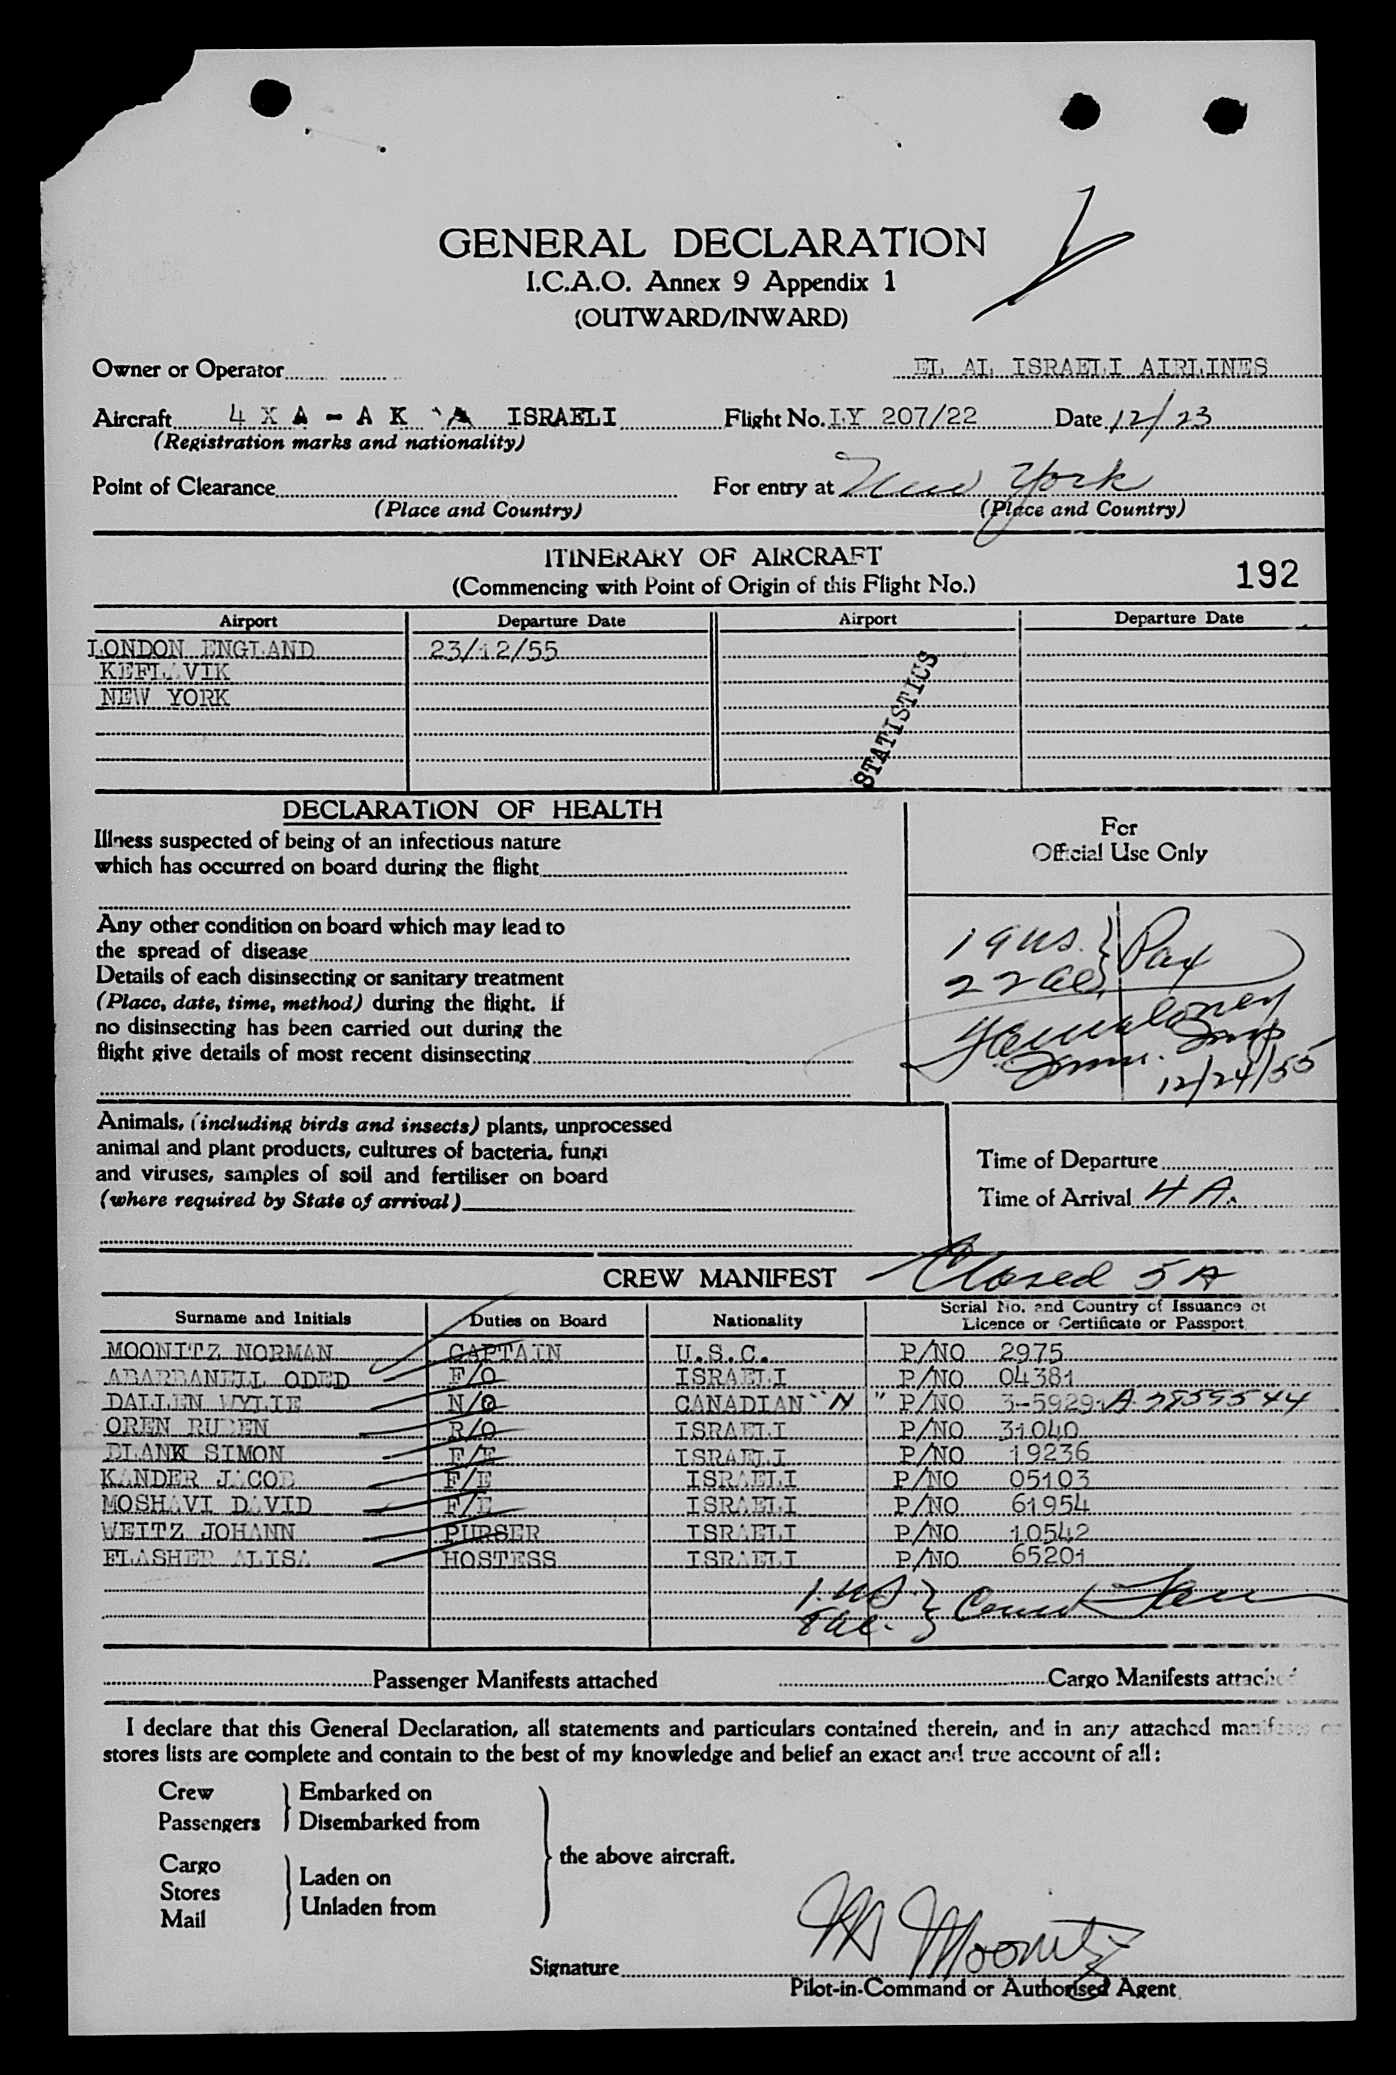 GENERAL DECLARATION
I.C.A.O. Annex 9 Appendix 1
(OUTWARD/INWARD)
Owner or Operator EL AL ISRAELI AIRLINES
Aircraft 4 X A - A K A ISRAELI Flight No. LY 207/22 Date 12/23
(Registration marks and nationality)
Point of Clearance For entry at New York
(Place and Country) (Place and Country)
ITINERARY OF AIRCRAFT
(Commencing with Point of Origin of this Flight No.) 192
Airport Departure Date Airport Departure Date
LONDON ENGLAND 23/12/55
KEFLAVIK
NEW YORK
STATISTICS
DECLARATION OF HEALTH
Illness suspected of being of an infectious nature
which has occurred on board during the flight
For
Official Use Only
Any other condition on board which may lead to
the spread of disease
Details of each disinsecting or sanitary treatment
(Place, date, time, method) during the flight. If
no disinsecting has been carried out during the
flight give details of most recent disinsecting
19 US. } Pax
22 al
Imm. Insp
12/24/55
Animals, (including birds and insects) plants, unprocessed
animal and plant products, cultures of bacteria, fungi
and viruses, samples of soil and fertiliser on board
(where required by State of arrival)
Time of Departure
Time of Arrival 4 A.
CREW MANIFEST Closed 5 A
Surname and Initials Duties on Board Nationality Serial No. and Country of Issuance of
Licence or Certificate or Passport
MOONITZ NORMAN CAPTAIN U.S.C. P/NO 2975
ABARBANELL ODED F/O ISRAELI P/NO 04381
DALLEN WYLIE N/O CANADIAN "N" P/NO 3-59291 A
OREN RUBEN R/O ISRAELI P/NO 31040
BLANK SIMON F/E ISRAELI P/NO 19236
KANDER JACOB F/E ISRAELI P/NO 05103
MOSHAVI DAVID F/E ISRAELI P/NO 61954
WEITZ JOHANN PURSER ISRAELI P/NO 10542
FLASHER ALISA HOSTESS ISRAELI P/NO 65201
1. US }
8 al.
Passenger Manifests attached Cargo Manifests attached
I declare that this General Declaration, all statements and particulars contained therein, and in any attached manifests or
stores lists are complete and contain to the best of my knowledge and belief an exact and true account of all:
Crew } Embarked on
Passengers } Disembarked from
the above aircraft.
Cargo
Stores } Laden on
Mail } Unladen from
Signature M Moonitz
Pilot-in-Command or Authorised Agent